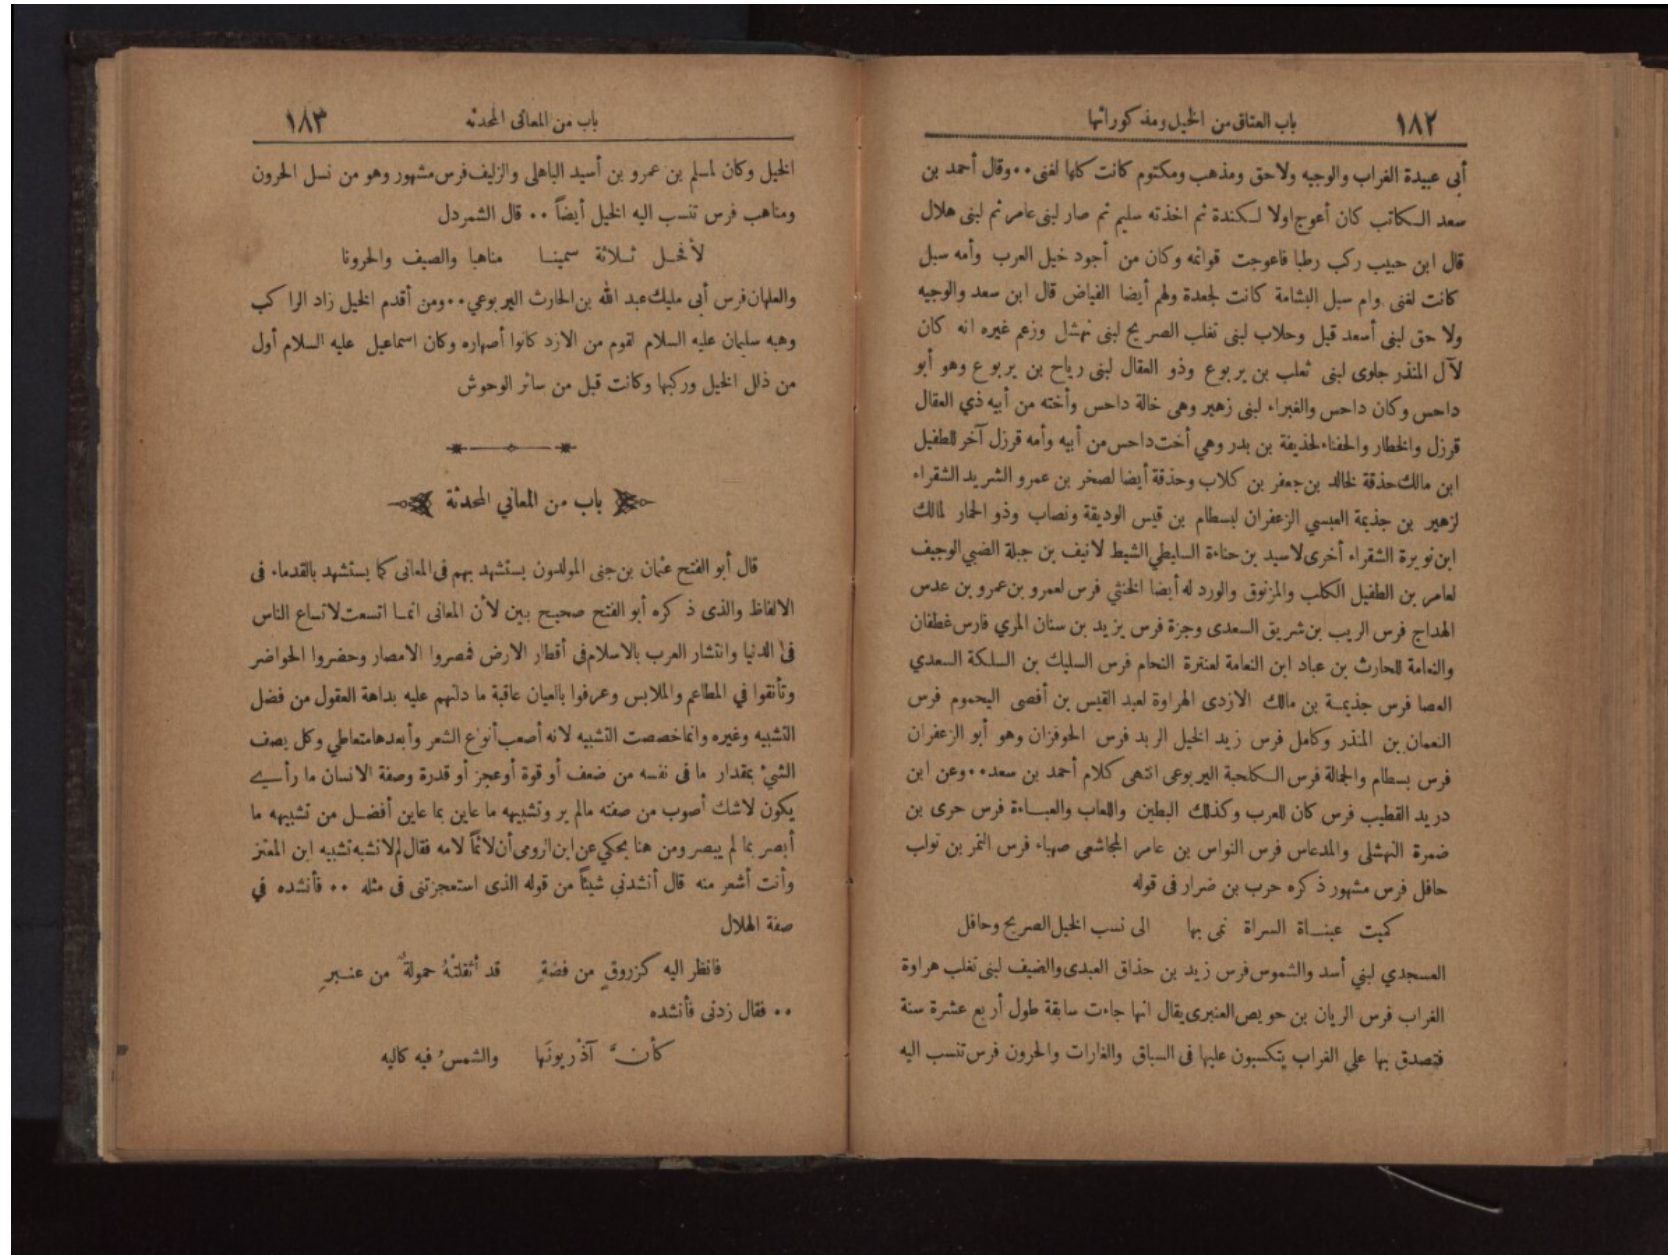 ١٨٢
باب العتاق من الخيل ومذكوراتها
أبى عبيدة الغراب والوجيه ولاحق ومذهب ومكتوم كانت كلها لغنى٠٠وقال أحمد بن
سعد الكاتب كان أعوج اولا لكندة ثم اخذته سليم ثم صار لبنى عامر ثم لبنى هلال
قال ابن حبيب ركب رطبا فاعوجت قوائمه وكان من أجود خيل العرب وأمه سبل
كانت لغنى وام سبل البشامة كانت لجعدة ولهم أيضا الفياض قال ابن سعد والوجيه
ولا حق لبنى أسعد قيل وحلاب لبنى تغلب الصريح لبنى نهشل وزعم غيره انه كان
لآل المنذر جلوى لبنى ثعلب بن يربوع وذو العقال لبنى رياح بن يربوع وهو أبو
داحس وكان داحس والغبراء لبنى زهير وهى خالة داحس وأخته من أبيه ذي العقال
قرزل والخطار والحنفاء لحذيفة بن بدر وهي أخت داحس من أبيه وأمه قرزل آخر للطفيل
ابن مالك حذقة لخالد بن جعفر بن كلاب وحذقة أيضا لصخر بن عمرو الشريد الشقراء
لزهير بن جذيمة العبسي الزعفران لبسطام بن قيس الوديقة ونصاب وذو الخمار لمالك
ابن نويرة الشقراء أخرى لاسيد بن حناءة السليطي الشيط لانيف بن جبلة الضبي الوجيف
لعامر بن الطفيل الكلب والمزنوق والورد له أيضا الخنثي فرس لعمرو بن عمرو بن عدس
الهداج فرس الريب بن شريق السعدى وجزة فرس يزيد بن سنان المري فارس غطفان
والنعامة للحارث بن عباد ابن النعامة لعنترة النحام فرس السليك بن السلكة السعدي
العصا فرس جذيمة بن مالك الازدى الهراوة لعبد القيس بن أفصى اليحموم فرس
النعمان بن المنذر وكامل فرس زيد الخيل الربد فرس الحوفزان وهو أبو الزعفران
فرس بسطام والجمالة فرس الكلحبة اليربوعى انتهى كلام أحمد بن سعد٠٠وعن ابن
دريد القطيب فرس كان للعرب وكذلك البطين واللعاب والعباءة فرس حرى بن
ضمرة النهشلى والمدعاس فرس النواس بن عامر المجاشعى صهباء فرس النمر بن تولب
حافل فرس مشهور ذكره حرب بن ضرار فى قوله
كميت عبناة السراة نمى بها الى نسب الخيل الصريح وحافل
العسجدي لبني أسد والشموس فرس زيد بن حذاق العبدى والضيف لبنى تغلب هراوة
الغراب فرس الريان بن حويص العنبرى يقال انها جاءت سابقة طول أربع عشرة سنة
فتصدق بها علي الغراب يتكسبون عليها فى السباق والغارات والحرون فرس تنسب اليه
باب من المعانى المحدثه
١٨٣
الخيل وكان لمسلم بن عمرو بن أسيد الباهلى والزليف فرس مشهور وهو من نسل الحرون
ومناهب فرس تنسب اليه الخيل أيضاً ٠٠ قال الشمردل
لأفحل ثلاثة سمينا مناهبا والصيف والحرونا
والعلهان فرس أبى مليك عبد الله بن الحارث اليربوعي٠٠ومن أقدم الخيل زاد الراكب
وهبه سليمان عليه السلام لقوم من الازد كانوا أصهاره وكان اسماعيل عليه السلام أول
من ذلل الخيل وركبها وكانت قبل من سائر الوحوش
باب من المعاني المحدثة
قال أبو الفتح عثمان بن جنى المولدون يستشهد بهم فى المعانى كما يستشهد بالقدماء فى
الالفاظ والذى ذكره أبو الفتح صحيح بين لأن المعانى انما اتسعت لاتساع الناس
فى الدنيا وانتشار العرب بالاسلام فى أقطار الارض فمصروا الامصار وحضروا الحواضر
وتأنقوا في المطاعم والملابس وعرفوا بالعيان عاقبة ما دلتهم عليه بداهة العقول من فضل
التشبيه وغيره وانما خصصت التشبيه لانه أصعب أنواع الشعر وأبعدها متعاطي وكل يصف
الشئ بمقدار ما فى نفسه من ضعف أو قوة أو عجز أو قدرة وصفة الانسان ما رأى
يكون لاشك أصوب من صفته مالم ير وتشبيهه ما عاين بما عاين أفضل من تشبيهه ما
أبصر بما لم يبصر ومن هنا يحكي عن ابن الرومى أن لائماً لامه فقال لم لا تشبه تشبيه ابن المعتز
وأنت أشعر منه قال أنشدنى شيئاً من قوله الذى استعجزتنى فى مثله ٠٠ فأنشده في
صفة الهلال
فانظر اليه كزروقٍ من فضةٍ قد أثقلتْهُ حمولةٌ من عنبرِ
٠٠ فقال زدنى فأنشده
كأنَّ آذْريونَها والشمسُ فيه كاليه